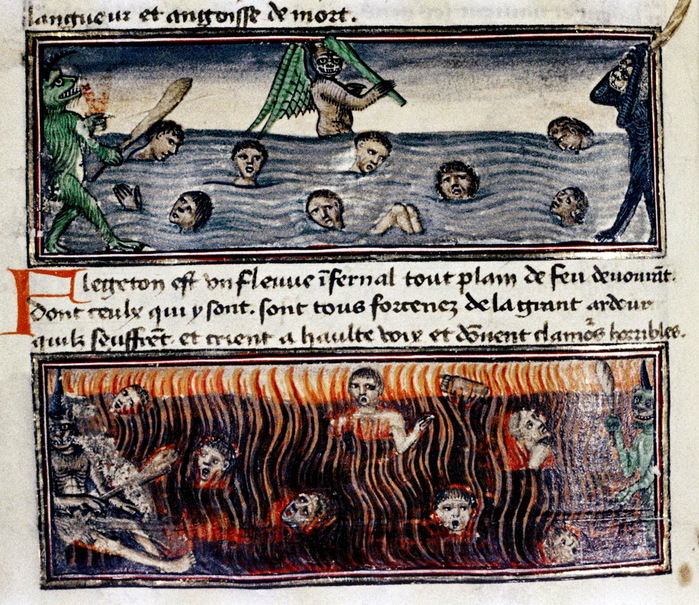 langueur et angoisse de mort.
Flegeton est vn fleuue īfernal tout plain de feu deuourāt.
Dont ceulx qui y sont. sont tous forcenez de la grant ardeur
quilz seuffrēt. et crient a haulte voix et dōnent clamo⁹s horribles.